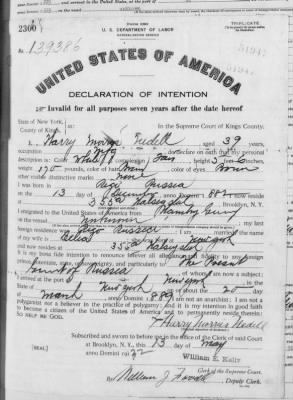 2306
Form 2202
U. S. DEPARTMENT OF LABOR
NATURALIZATION SERVICE
TRIPLICATE
No. 139386
UNITED STATES OF AMERICA
DECLARATION OF INTENTION
Invalid for all purposes seven years after the date hereof
State of New York,
County of Kings, ss:
In the Supreme Court of Kings County.
I, Harry Morris Nedell, aged 39 years,
occupation, do declare on oath that my personal
description is: Color White, complexion Fair, height 5 feet 6 inches,
weight 170 pounds, color of hair, color of eyes Brown
other visible distinctive marks None
I was born in Riga Russia
on the 13 day of, anno Domini 1882; I now reside
at 355a Halsey St., Brooklyn, N.Y.
I emigrated to the United States of America from Hamburg
on the vessel Unknown; my last
foreign residence was Riga Russia; I am married; the name
of my wife is Celia; she was born at New York
and now resides at 355a Halsey St
It is my bona fide intention to renounce forever all allegiance and fidelity to any foreign
prince, potentate, state, or sovereignty, and particularly to The Present
Government of Russia, of whom I am now a subject;
I arrived at the port of New York, in the
State of New York, on or about the 20 day
of March, anno Domini 1889; I am not an anarchist; I am not a
polygamist nor a believer in the practice of polygamy; and it is my intention in good faith
to become a citizen of the United States of America and to permanently reside therein:
SO HELP ME GOD.
Harry Morris Nedell
Subscribed and sworn to before me in the office of the Clerk of said Court
[SEAL] at Brooklyn, N. Y., this 13 day of May
anno Domini 1922
William E. Kelly
Clerk of the Supreme Court.
By, Deputy Clerk.